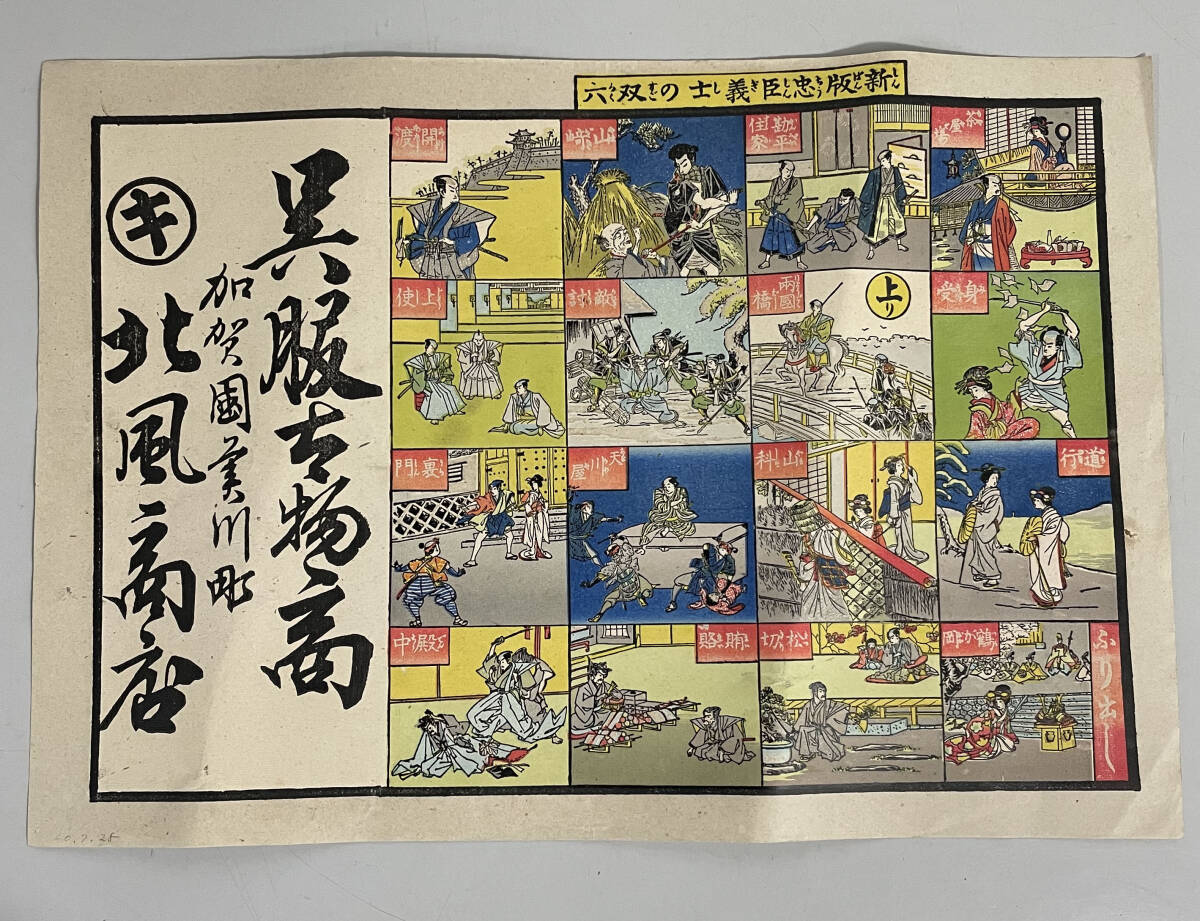 新版忠臣義士の双六
茶屋場
勘平住家
山崎
開渡
身受
上り
兩國橋
敵討
上使
道行
山科
天川屋
裏門
ふり出し
鶴が岡
松切
賄賂
殿中
呉服古物商
加賀國美川町
キ
北風商店